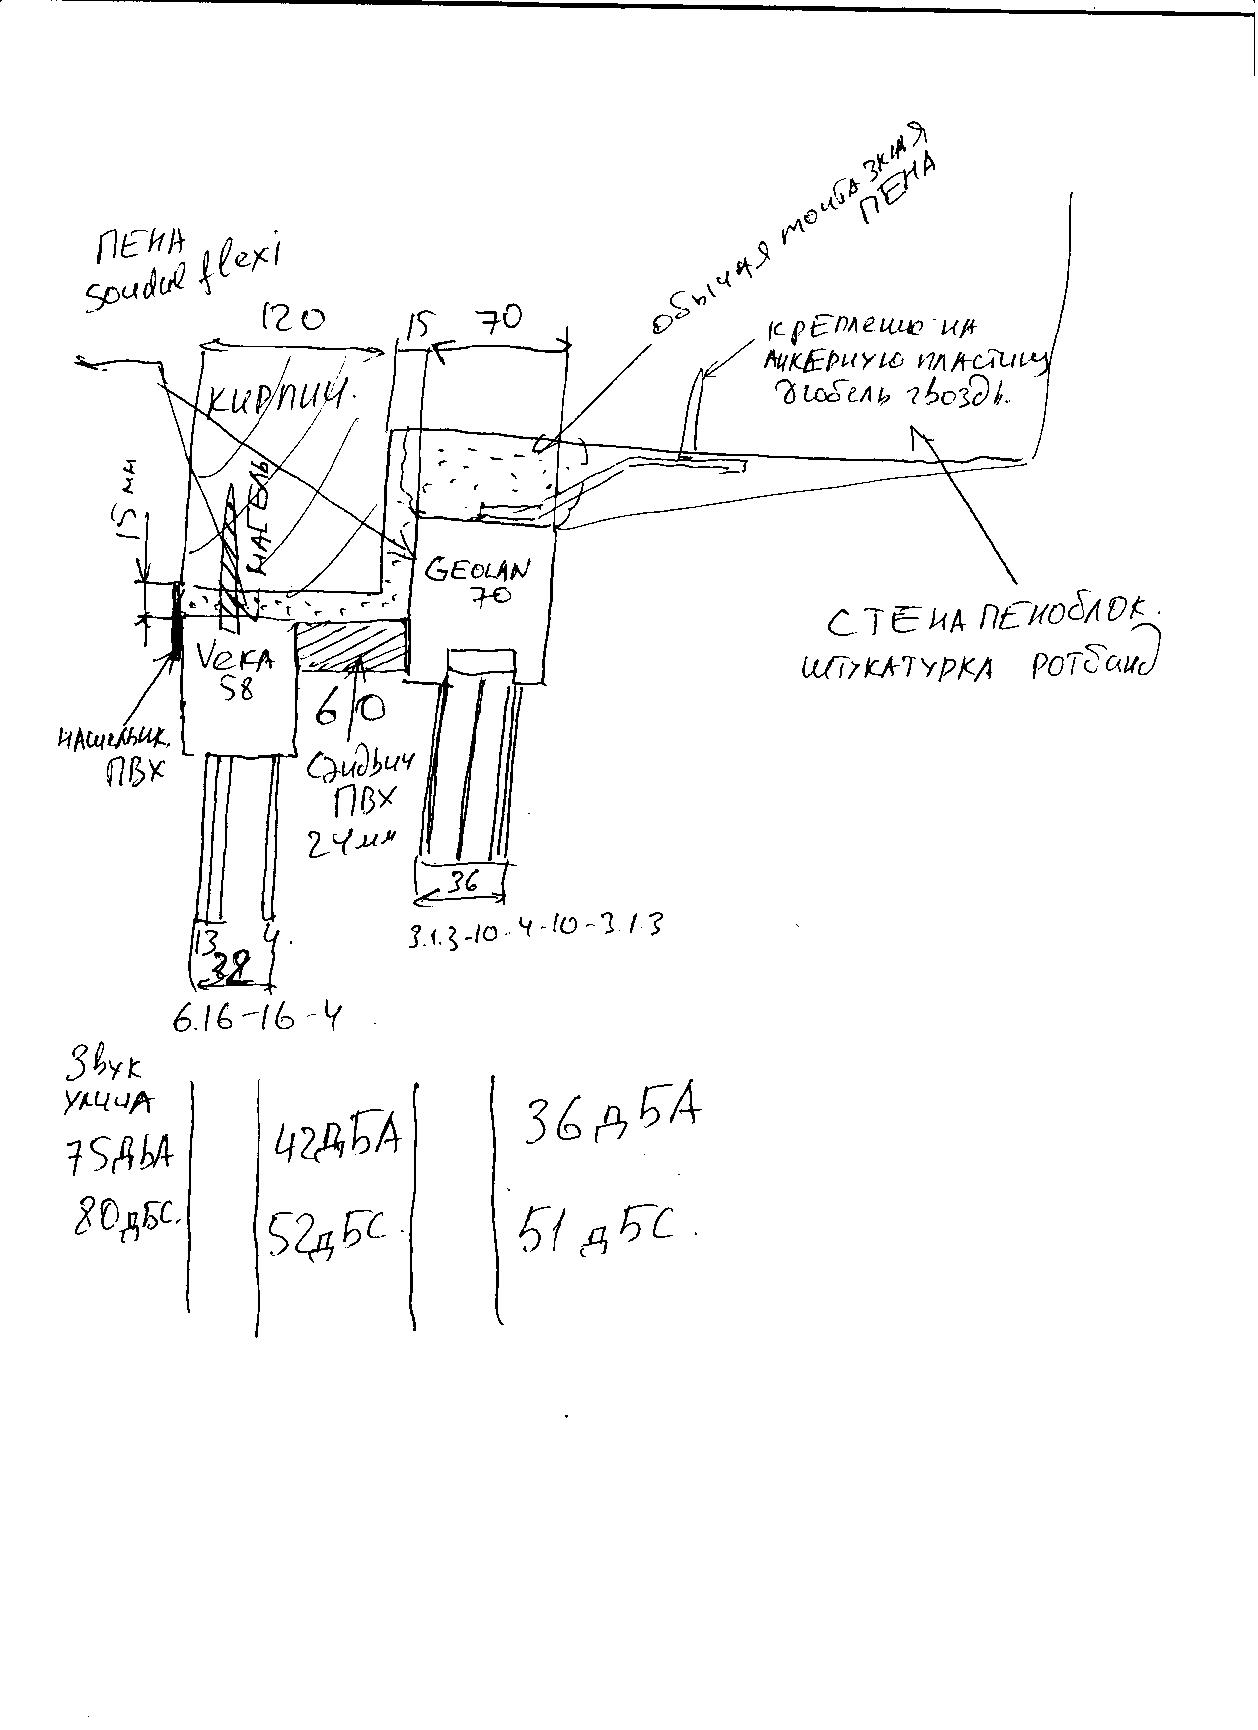 ОБЫЧАЯ МОНТАЗКНАЯ
ПЕНА
ПЕНА
soudal flexi
120
15
70
КИРПИЧ.
КРЕПЛЕНЮ НА
АНКЕРНУЮ ПЛАСТИНУ
дюбель гвоздь.
15 мм
НАГЕЛЬ
GEOLAN
70
СТЕНА ПЕНОБЛОК.
ШТУКАТУРКА РОТбанд
VEKA
58
60
НАЩЕЛЬНИК.
ПВХ
Сэндвич
ПВХ
24мм
36
3.1.3-10-4-10-3.1.3
13
4.
38
6.16-16-4
Звук
улица
75ДБА
42ДБА
36дБА
80дБС.
52дБС.
51дБС.